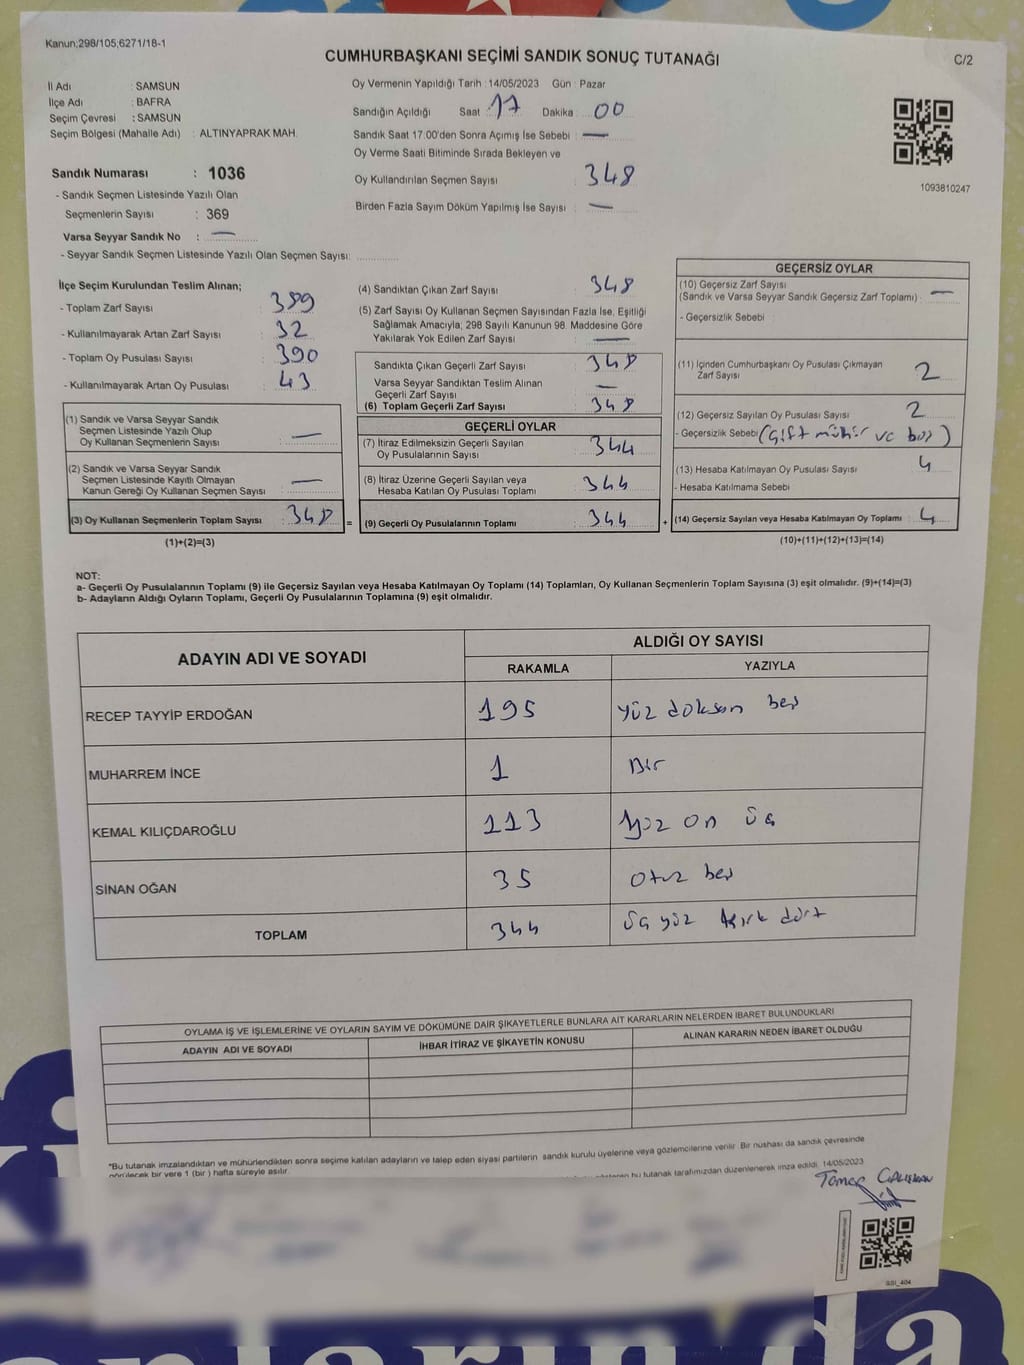 Kanun;298/105;6271/18-1
CUMHURBAŞKANI SEÇİMİ SANDIK SONUÇ TUTANAĞI
C/2
İl Adı : SAMSUN
İlçe Adı : BAFRA
Seçim Çevresi : SAMSUN
Seçim Bölgesi (Mahalle Adı) : ALTINYAPRAK MAH.
Sandık Numarası : 1036
- Sandık Seçmen Listesinde Yazılı Olan
Seçmenlerin Sayısı : 369
Varsa Seyyar Sandık No : —
- Seyyar Sandık Seçmen Listesinde Yazılı Olan Seçmen Sayısı: ..............
Oy Vermenin Yapıldığı Tarih : 14/05/2023 Gün : Pazar
Sandığın Açıldığı Saat : 17 Dakika : 00
Sandık Saat 17.00'den Sonra Açımış İse Sebebi : —
Oy Verme Saati Bitiminde Sırada Bekleyen ve
Oy Kullandırılan Seçmen Sayısı : 348
Birden Fazla Sayım Döküm Yapılmış İse Sayısı : —
1093810247
İlçe Seçim Kurulundan Teslim Alınan;
- Toplam Zarf Sayısı : 389
- Kullanılmayarak Artan Zarf Sayısı : 32
- Toplam Oy Pusulası Sayısı : 390
- Kullanılmayarak Artan Oy Pusulası : 43
(1) Sandık ve Varsa Seyyar Sandık
Seçmen Listesinde Yazılı Olup
Oy Kullanan Seçmenlerin Sayısı : —
(2) Sandık ve Varsa Seyyar Sandık
Seçmen Listesinde Kayıtlı Olmayan
Kanun Gereği Oy Kullanan Seçmen Sayısı : —
(3) Oy Kullanan Seçmenlerin Toplam Sayısı : 348 =
(1)+(2)=(3)
(4) Sandıktan Çıkan Zarf Sayısı : 348
(5) Zarf Sayısı Oy Kullanan Seçmen Sayısından Fazla İse, Eşitliği
Sağlamak Amacıyla; 298 Sayılı Kanunun 98. Maddesine Göre
Yakılarak Yok Edilen Zarf Sayısı : —
Sandıkta Çıkan Geçerli Zarf Sayısı : 348
Varsa Seyyar Sandıktan Teslim Alınan
Geçerli Zarf Sayısı : —
(6) Toplam Geçerli Zarf Sayısı : 348
GEÇERLİ OYLAR
(7) İtiraz Edilmeksizin Geçerli Sayılan
Oy Pusulalarının Sayısı : 344
(8) İtiraz Üzerine Geçerli Sayılan veya
Hesaba Katılan Oy Pusulası Toplamı : 344
(9) Geçerli Oy Pusulalarının Toplamı : 344 +
GEÇERSİZ OYLAR
(10) Geçersiz Zarf Sayısı
(Sandık ve Varsa Seyyar Sandık Geçersiz Zarf Toplamı) : —
- Geçersizlik Sebebi :
(11) İçinden Cumhurbaşkanı Oy Pusulası Çıkmayan
Zarf Sayısı : 2
(12) Geçersiz Sayılan Oy Pusulası Sayısı : 2
- Geçersizlik Sebebi (çift mühür ve boş)
(13) Hesaba Katılmayan Oy Pusulası Sayısı : 4
- Hesaba Katılmama Sebebi
(14) Geçersiz Sayılan veya Hesaba Katılmayan Oy Toplamı : 4
(10)+(11)+(12)+(13)=(14)
NOT:
a- Geçerli Oy Pusulalarının Toplamı (9) ile Geçersiz Sayılan veya Hesaba Katılmayan Oy Toplamı (14) Toplamları, Oy Kullanan Seçmenlerin Toplam Sayısına (3) eşit olmalıdır. (9)+(14)=(3)
b- Adayların Aldığı Oyların Toplamı, Geçerli Oy Pusulalarının Toplamına (9) eşit olmalıdır.
ADAYIN ADI VE SOYADI ALDIĞI OY SAYISI
RAKAMLA YAZIYLA
RECEP TAYYİP ERDOĞAN 195 yüz doksan beş
MUHARREM İNCE 1 Bir
KEMAL KILIÇDAROĞLU 113 Yüz on üç
SİNAN OĞAN 35 Otuz beş
TOPLAM 344 üç yüz kırk dört
OYLAMA İŞ VE İŞLEMLERİNE VE OYLARIN SAYIM VE DÖKÜMÜNE DAİR ŞİKAYETLERLE BUNLARA AİT KARARLARIN NELERDEN İBARET BULUNDUKLARI
ADAYIN ADI VE SOYADI İHBAR İTİRAZ VE ŞİKAYETİN KONUSU ALINAN KARARIN NEDEN İBARET OLDUĞU
*Bu tutanak imzalandıktan ve mühürlendikten sonra seçime katılan adayların ve talep eden siyasi partilerin sandık kurulu üyelerine veya gözlemcilerine verilir. Bir nüshası da sandık çevresinde
görülecek bir yere 1 (bir) hafta süreyle asılır.
bu tutanak tarafımızdan düzenlenerek imza edildi. 14/05/2023
Tamer ÇALIŞKAN
SSI_404